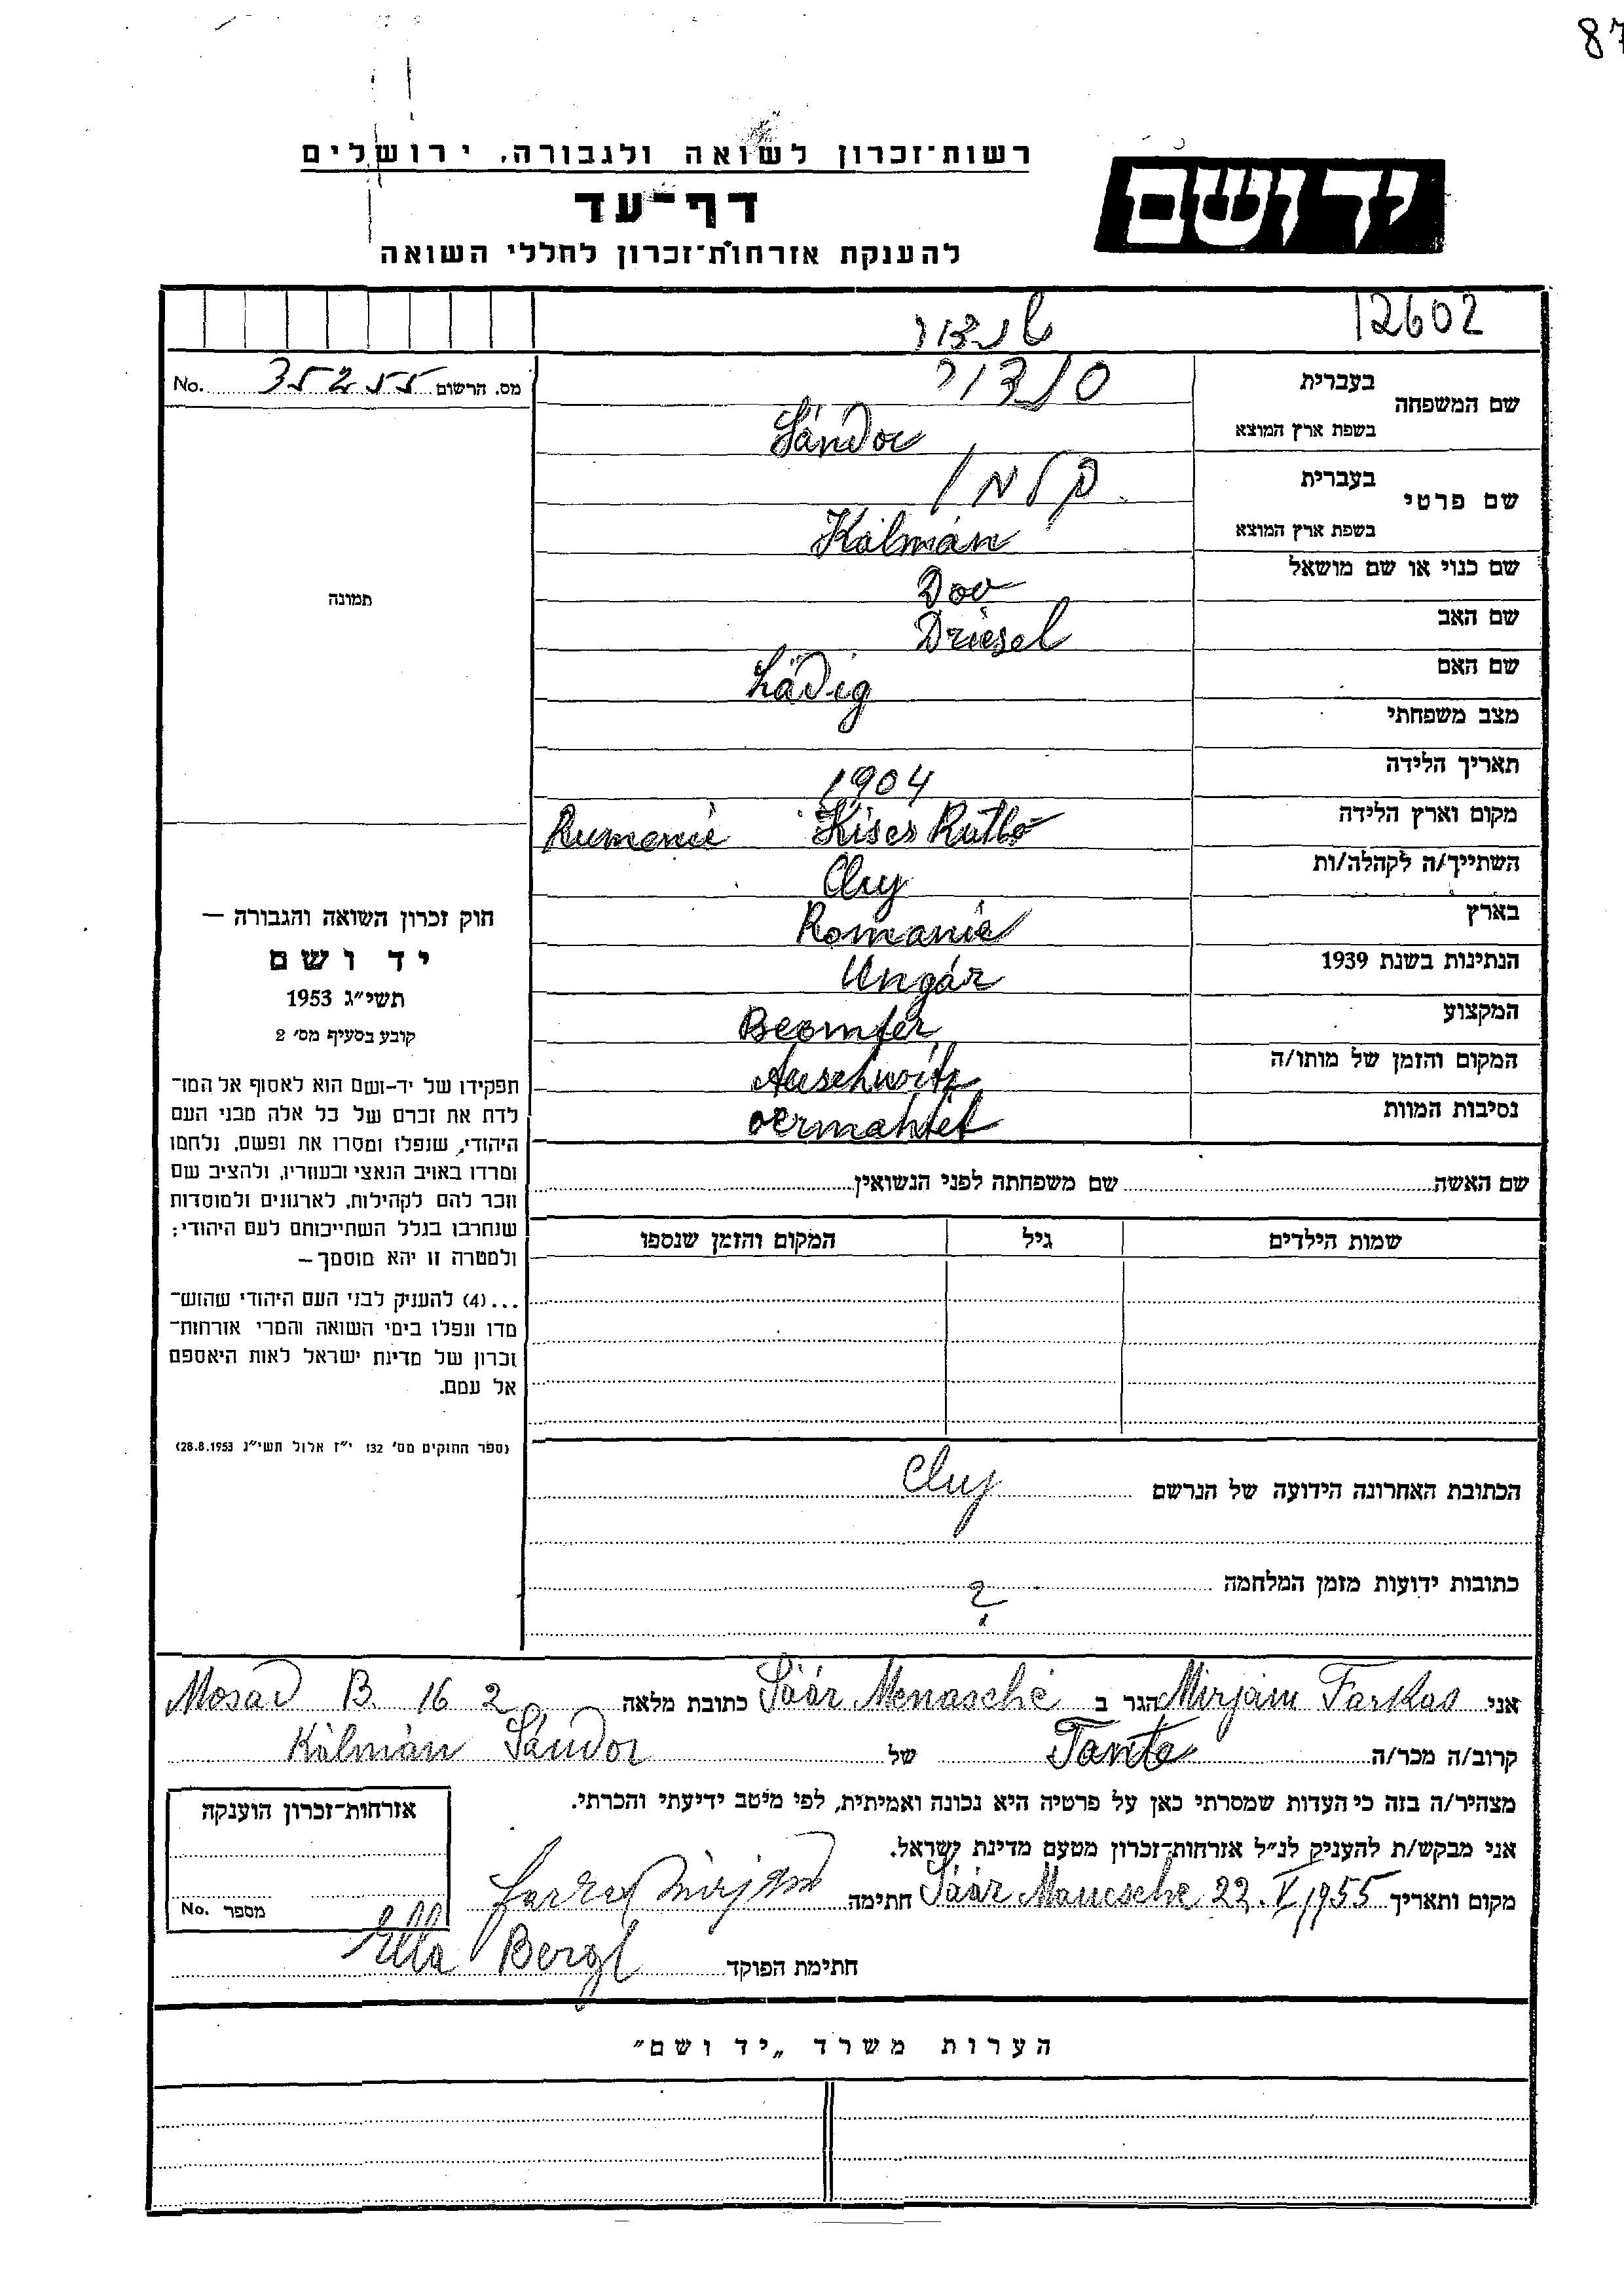 87
רשות־זכרון לשואה ולגבורה, ירושלים
יד ושם
דף־עד
להענקת אזרחות־זכרון לחללי השואה
12602
שנדור
מס. הרשום 35255 No.
שם המשפחה
בעברית סנדור
בשפת ארץ המוצא Sándor
שם פרטי
בעברית קלמן
בשפת ארץ המוצא Kálmán
שם כנוי או שם מושאל Dov
שם האב Driesel
שם האם Lädig
מצב משפחתי
תאריך הלידה 1904
מקום וארץ הלידה Kises Rutló Rumanie
השתייך/ה לקהלה/ות Cluj
בארץ Romanie
הנתינות בשנת 1939 Ungár
המקצוע Beomter
המקום והזמן של מותו/ה Auschwitz
נסיבות המוות vermahtet
תמונה
חוק זכרון השואה והגבורה —
יד ושם
תשי״ג 1953
קובע בסעיף מס׳ 2
תפקידו של יד-ושם הוא לאסוף אל המו־
לדת את זכרם של כל אלה מבני העם
היהודי, שנפלו ומסרו את נפשם, נלחמו
ומרדו באויב הנאצי ובעוזריו, ולהציב שם
וזכר להם לקהילות, לארגונים ולמוסדות
שנחרבו בגלל השתייכותם לעם היהודי;
ולמטרה זו יהא מוסמך —
...(4) להעניק לבני העם היהודי שהוש־
מדו ונפלו בימי השואה והמרי אזרחות־
זכרון של מדינת ישראל לאות היאספם
אל עמם.
(ספר החוקים מס׳ 132 י״ז אלול תשי״ג 28.8.1953)
שם האשה שם משפחתה לפני הנשואין
שמות הילדים גיל המקום והזמן שנספו
הכתובת האחרונה הידועה של הנרשם Cluj
כתובות ידועות מזמן המלחמה ?
אני Mirjam Farkas הגר ב Sáár Menasché כתובת מלאה Mosad B. 16 2
קרוב/ה מכר/ה Tante של Kálmán Sándor
מצהיר/ה בזה כי העדות שמסרתי כאן על פרטיה היא נכונה ואמיתית, לפי מיטב ידיעתי והכרתי.
אני מבקש/ת להעניק לנ״ל אזרחות־זכרון מטעם מדינת ישראל.
מקום ותאריך Sáár Manesche 22. V 1955 חתימה Farkas Mirjam
חתימת הפוקד Ella Bergl
אזרחות־זכרון הוענקה
מספר No.
הערות משרד „יד ושם״